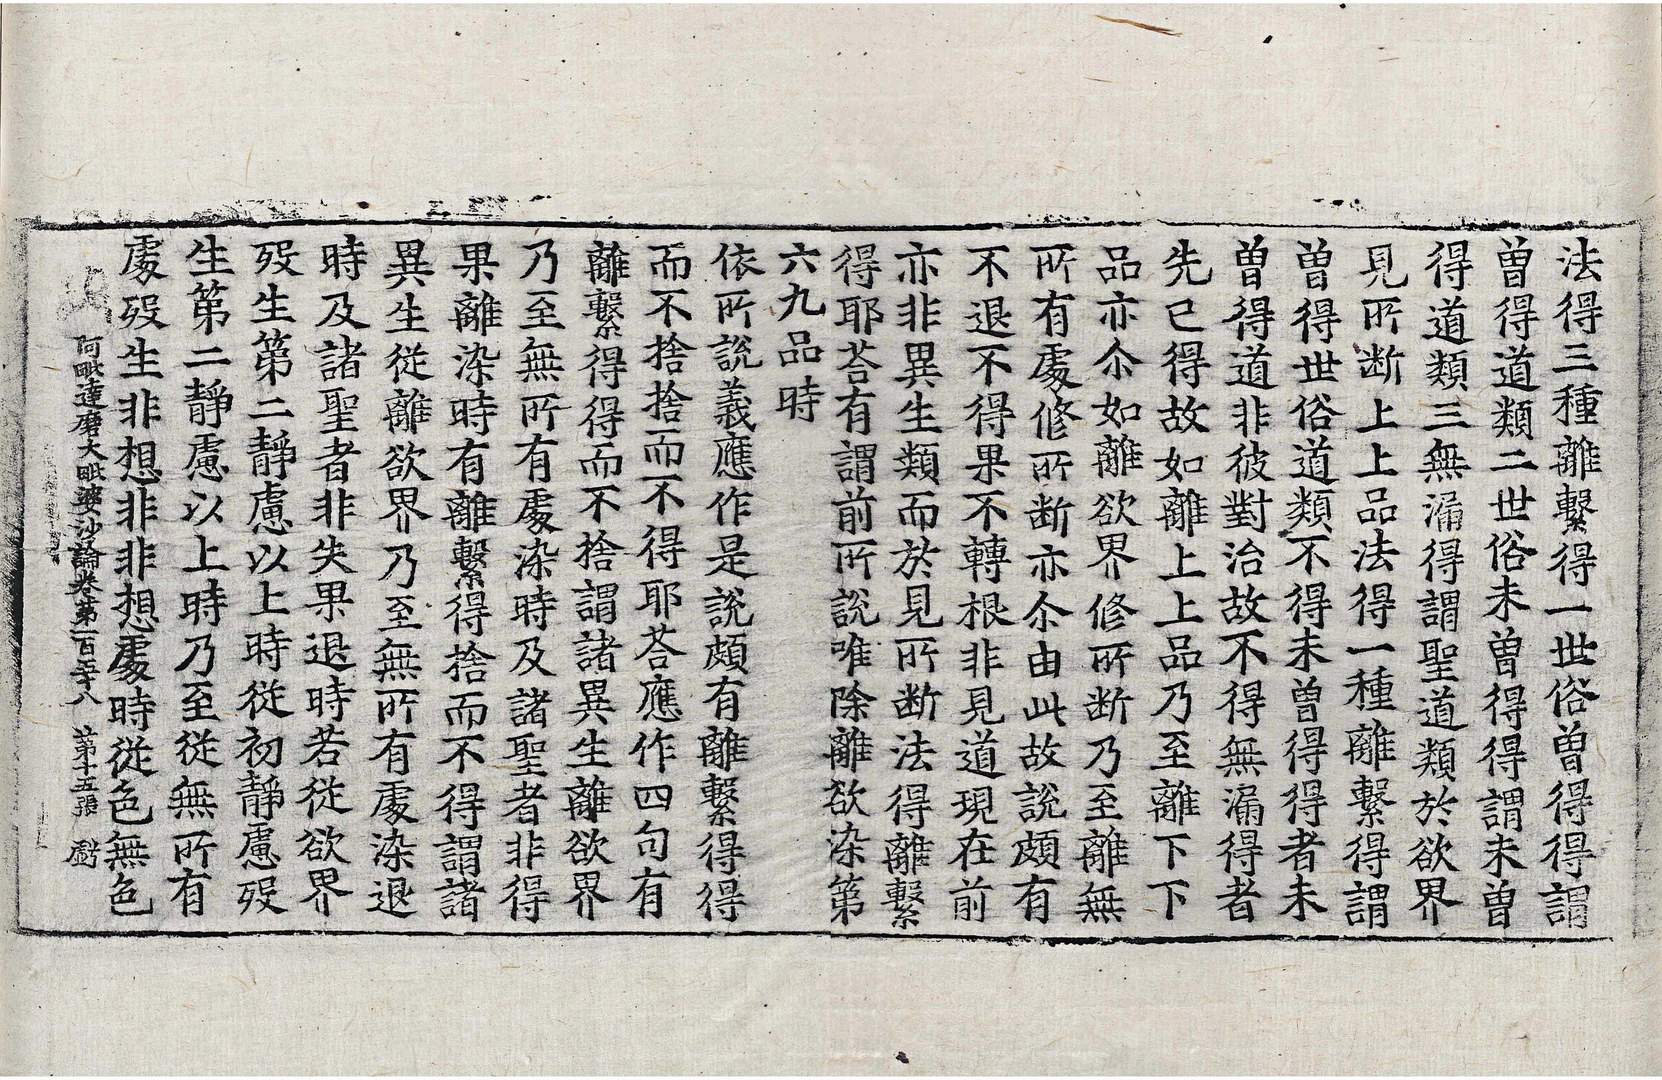 法得三種離繫得一世俗曾得得謂
曾得道類二世俗未曾得得謂未曾
得道類三無漏得謂聖道類於欲界
見所断上上品法得一種離繫得謂
曾得世俗道類不得未曾得得者未
曾得道非彼對治故不得無漏得者
先已得故如離上上品乃至離下下
品亦尒如離欲界修所断乃至離無
所有處修所断亦尒由此故說頗有
不退不得果不轉根非見道現在前
亦非異生類而於見所断法得離繫
得耶荅有謂前所說唯除離欲染第
六九品時
依所說義應作是說頗有離繫得得
而不捨捨而不得耶荅應作四句有
離繫得得而不捨謂諸異生離欲界
乃至無所有處染時及諸聖者非得
果離染時有離繫得捨而不得謂諸
異生從離欲界乃至無所有處染退
時及諸聖者非失果退時若從欲界
歿生第二靜慮以上時從初靜慮歿
生第二靜慮以上時乃至從無所有
處歿生非想非非想處時從色無色
阿毗達磨大毗婆沙論卷第一百五十八 第十五張